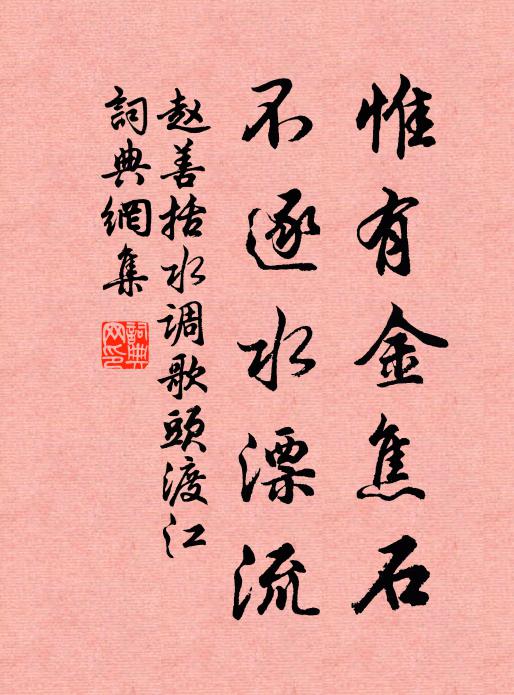 惟有金焦石
不逐水漂流
赵善括水调歌頭渡江
詞典網集
詞典網印